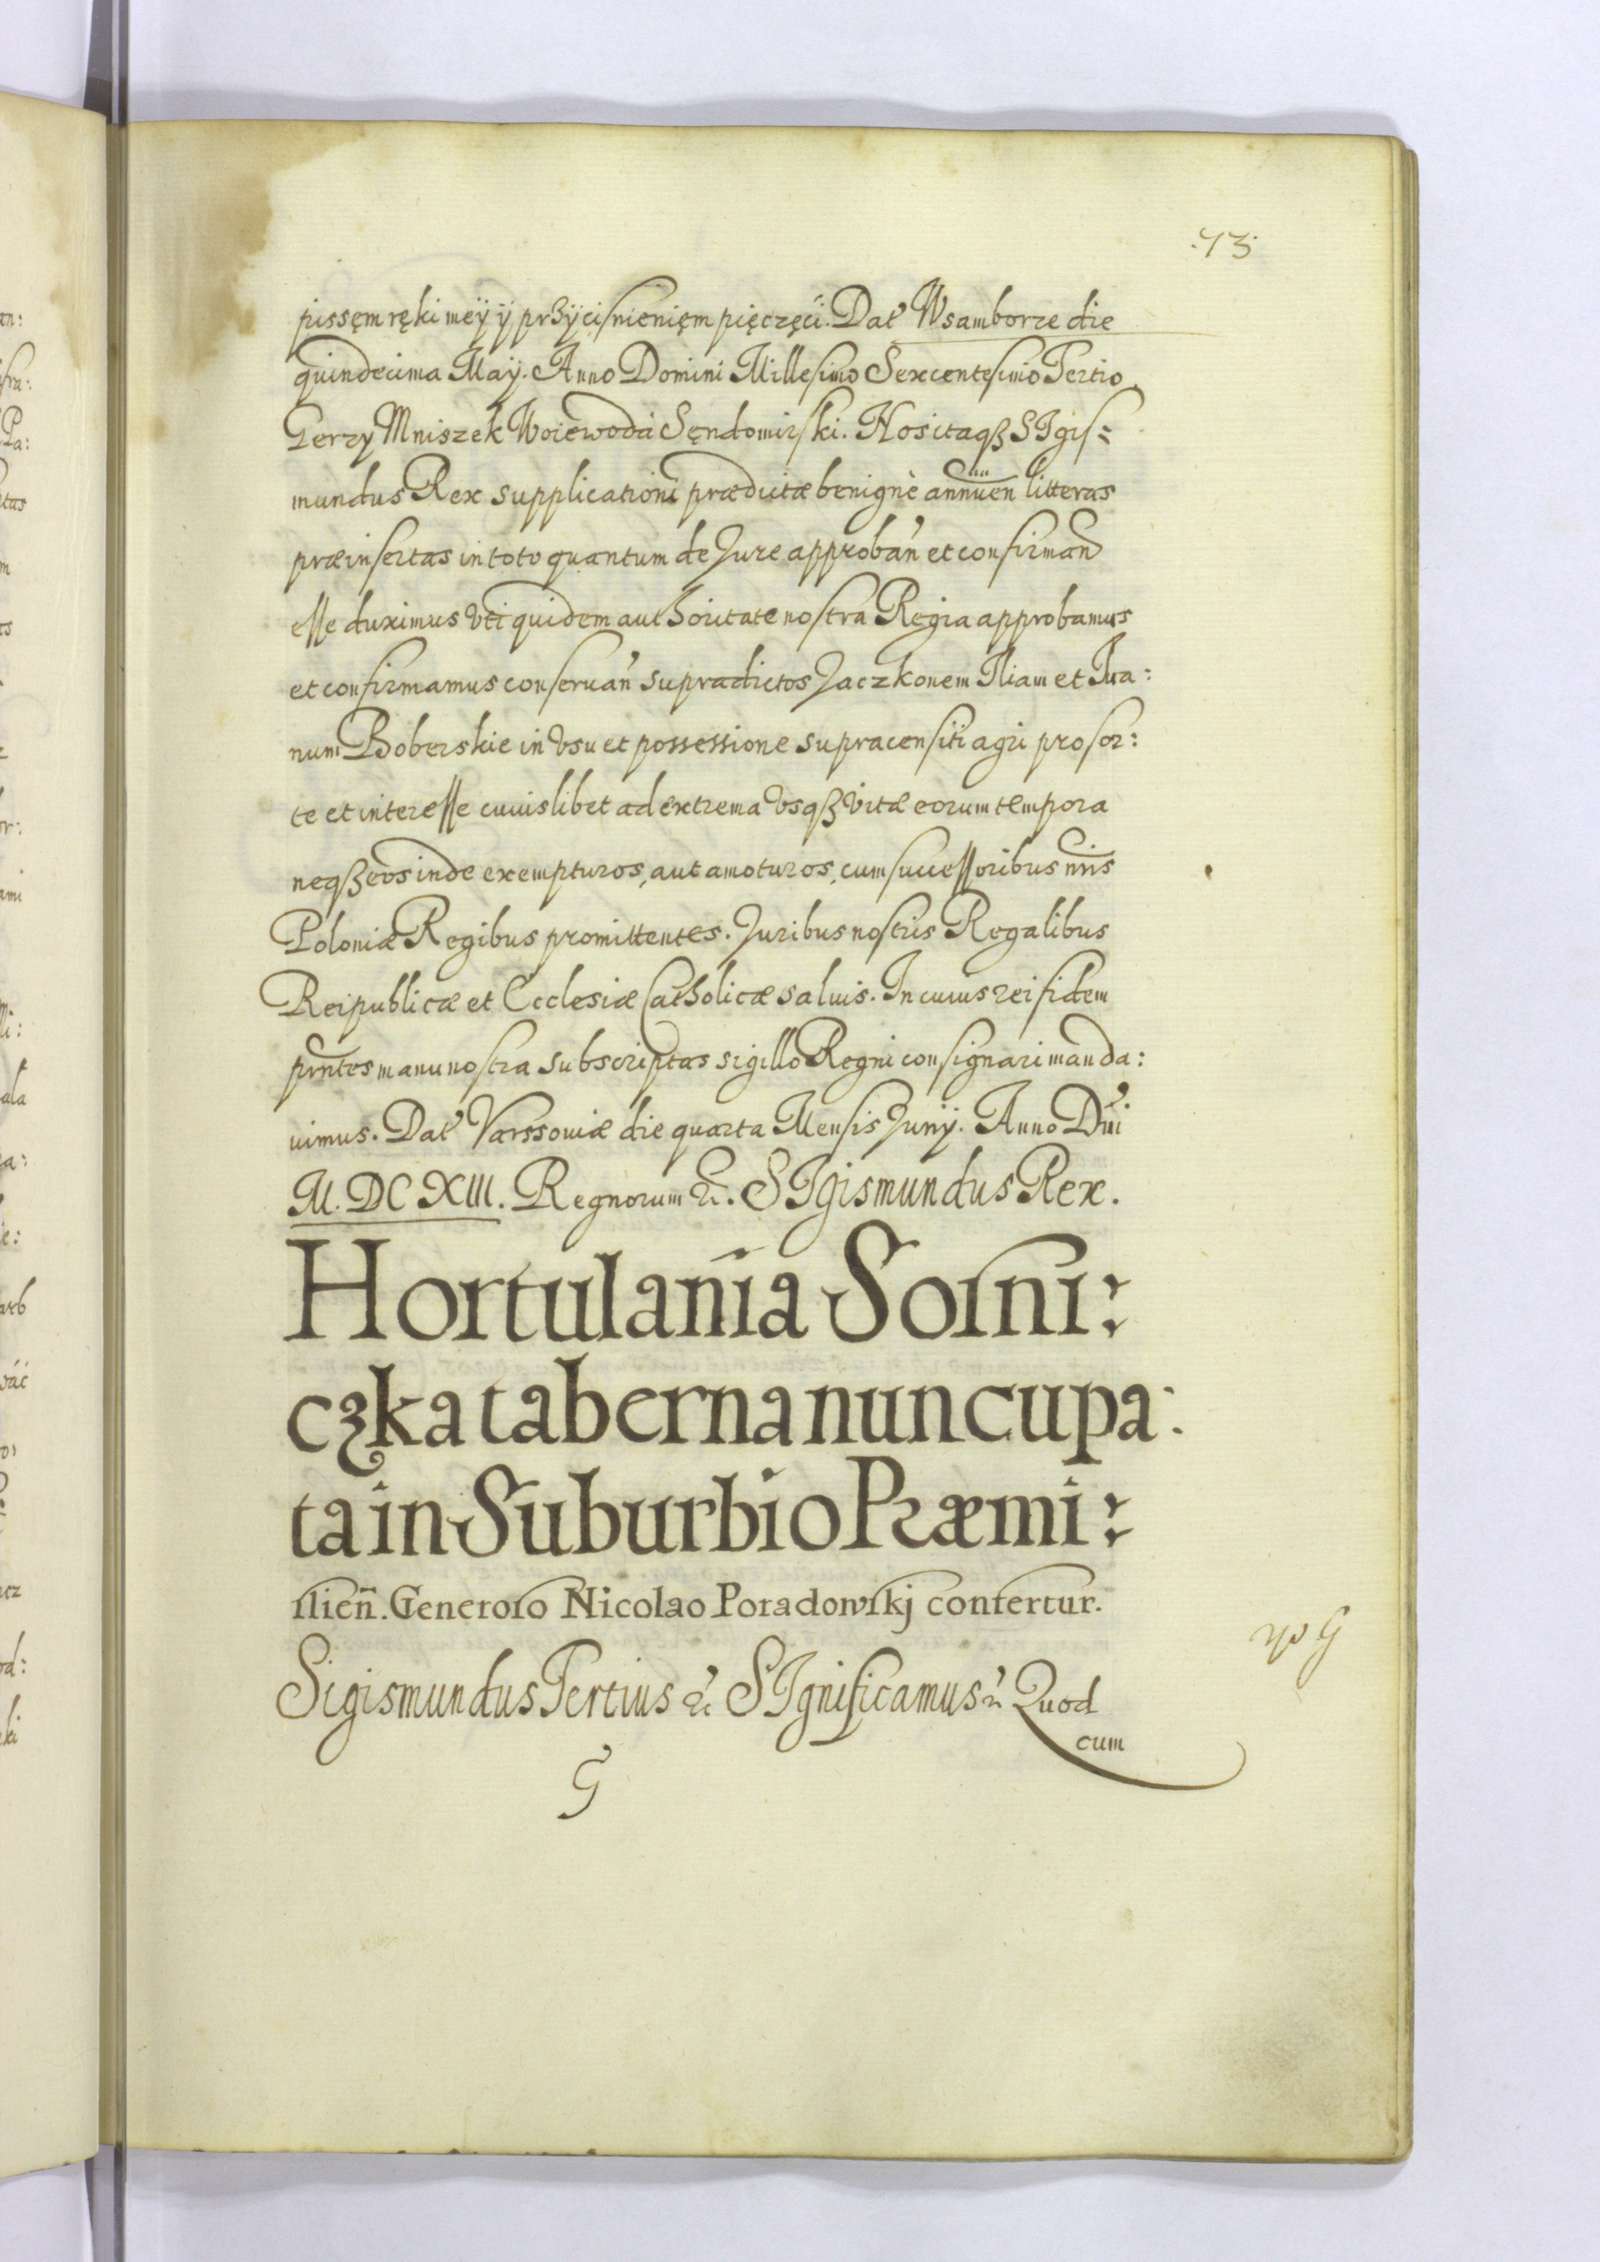 .73.
pissęm ręki meÿ ÿ przÿcisnienięm pięczęći. Dat Wsamborze die
quindecima Maÿ. Anno Domini Millesimo Sexcentesimo Tertio
Jerzy Mniszek Woiewoda Sęndomirski. Nos itaqȝ SIgis=
mundus Rex supplicationi prædictæ benignè annuen litteras
præinsertas in toto quantum de Jure approban et confirman
esse duximus vti quidem authoritate nostra Regia approbamus
et confirmamus conseruan supradictos Jaczkonem Iliam et Iua:
num Boberskie in vsu et possessione supracensiti agri pro sor:
te et interesse cuiuslibet ad extrema vsqȝ vitæ eorum tempora
neqȝ eos inde exempturos, aut amoturos, cum successoribus nris
Poloniæ Regibus promittentes. Juribus nostris Regalibus
Reipublicæ et Ecclesiæ Catholicæ saluis. In cuius rei fidem
prntes manu nostra subscriptas sigillo Regni consignari manda:
uimus. Dat Varssouiæ die quarta Mensis Junij. Anno Dni
M. DC XIII. Regnorum &c. SIgismundus Rex.
Hortulania Sorni:
czka taberna nuncupa:
ta in Suburbio Præmi:
slien. Generoso Nicolao Poradowskj confertur.
Sigismundus Tertius &c SIgnificamus &c Quod
cum
G